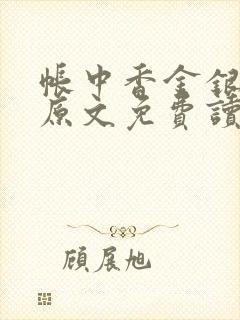 帳中香金銀
原文免費讀
顧展旭